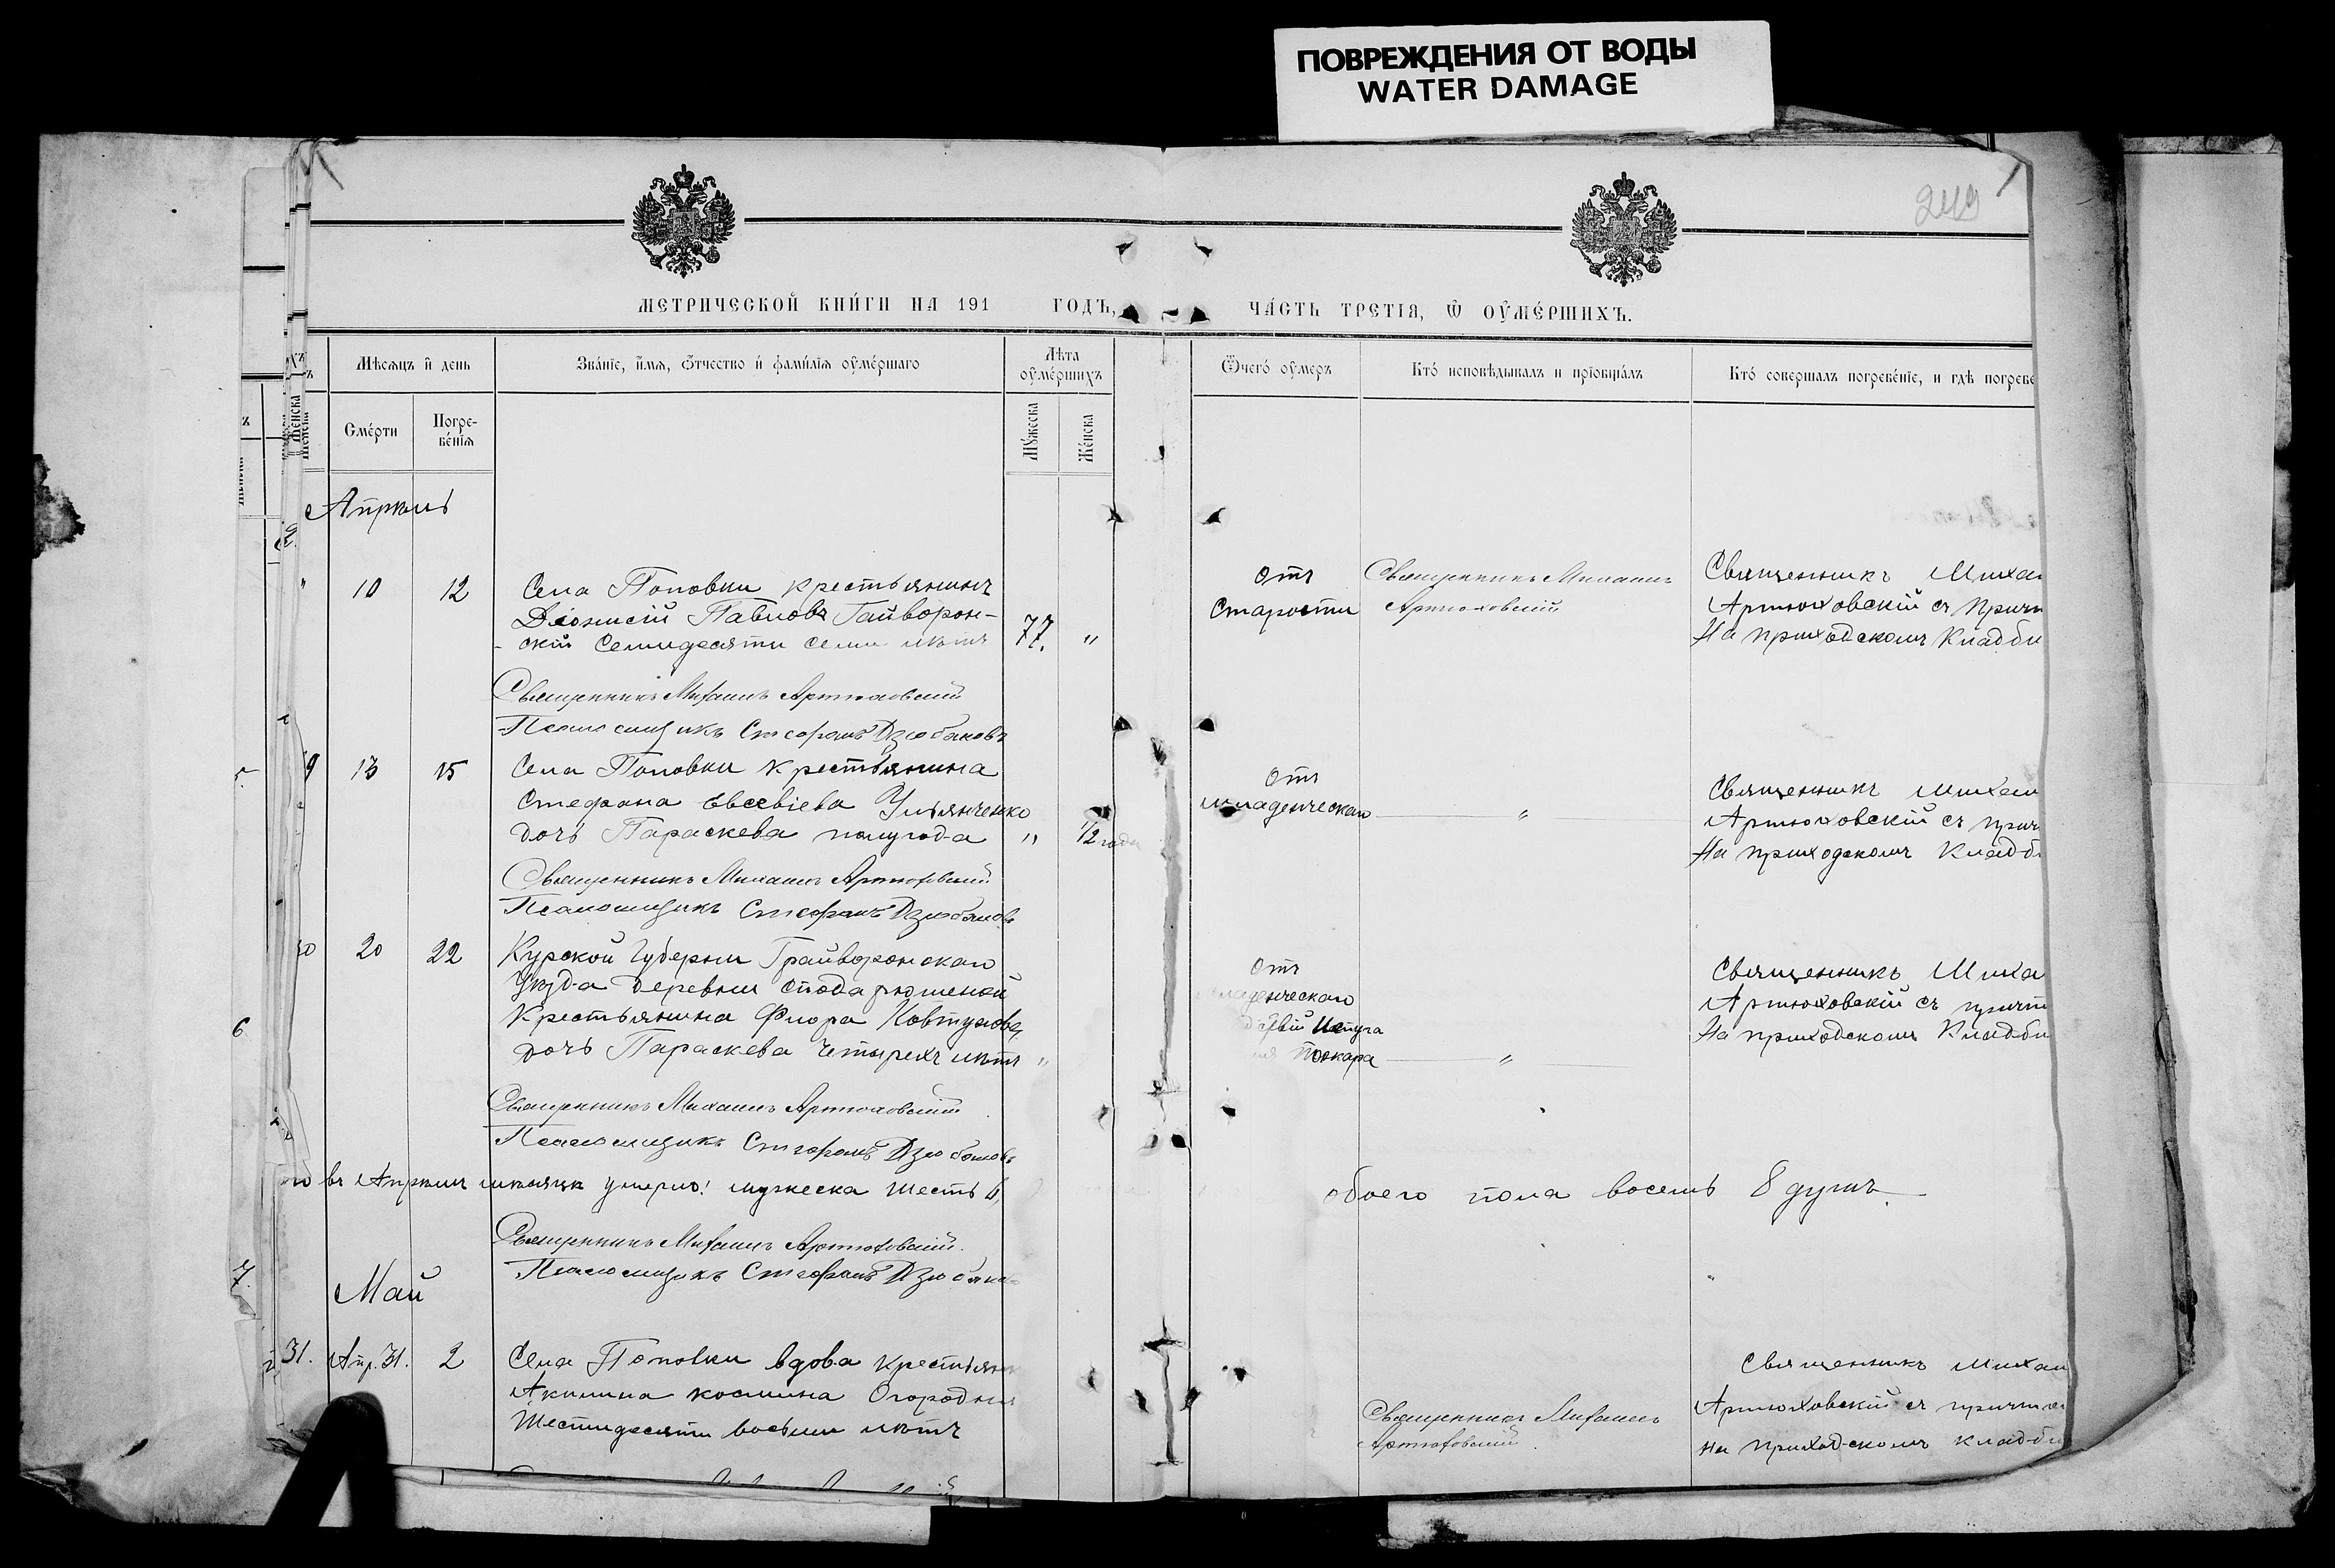 ПОВРЕЖДЕНИЯ ОТ ВОДЫ
WATER DAMAGE
249
МЕТРИЧЕСКОЙ КНИ́ГИ НА 191 ГОДЪ, ЧА́СТЬ ТРЕТІЯ, Ѡ ОУМЕ́РШИХЪ.
Мѣсяцъ и день
Сме́рти
Погре-
бе́нія
Зва́ніе, имя, отчество и фами́лія оуме́ршаго
Лѣта
оуме́ршихъ
Мужеска
Же́нска
Ѿчего́ оумеръ
Кто́ исповѣдывалъ и пріобща́лъ
Кто́ совершалъ погребе́ніе, и гдѣ погребе
Апрѣль
10 12
Села Поповки крестьянинъ
Діонисій Павловъ Гайворон-
скій семидесяти семи лѣтъ
77. "
Отъ
старости
Священникъ Михаилъ
Артюховскій
Священникъ Миха
Артюховскій съ прич
На приходскомъ кладби
Священникъ Михаилъ Артюховскій
Псаломщикъ Стефанъ Дзюбановъ
9 13 15
Села Поповки крестьянина
Стефана Евсевіева Ульянченко
дочь Параскева полугода
" 1/2 года
Отъ
младенческаго
"
Священникъ Михаи
Артюховскій съ прич
На приходскомъ кладб
Священникъ Михаилъ Артюховскій
Псаломщикъ Стефанъ Дзюбановъ
20 22
Курской Губерніи Грайворонскаго
Уѣзда деревни
крестьянина Флора Ковтунова
дочь Параскева четырехъ лѣтъ "
Отъ
младенческаго
испуга
пожара
"
Священникъ Миха
Артюховскій съ причт
На приходскомъ кладби
Священникъ Михаилъ Артюховскій
Псаломщикъ Стефанъ Дзюбановъ
6
въ Апрѣлѣ мѣсяцѣ умерло: мужеска шесть 6, обоего пола восемь 8 душъ.
Священникъ Михаилъ Артюховскій.
Псаломщикъ Стефанъ Дзюбано
7.
Май
31. Апр. 31. 2
Села Поповки вдова крестьян
Акилина Космина Огородня
шестидесяти восьми лѣтъ
Священникъ Михаилъ
Артюховскій.
Священникъ Михаи
Артюховскій съ причто
на приходскомъ кладби